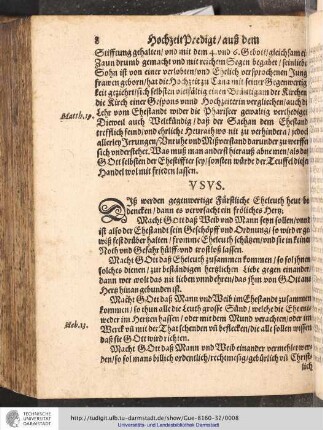 8 Hochzeit Predigt / auß dem
Stifftung gehalten / vnd mit dem 4. vnd 6. Gebott / gleichsam ei
Zaun drumb gemacht vnd mit reichem Segen begabet / sein liebe
Sohn ist von einer verlobten / vnd Ehelich versprochenen Jung
frawen geborn / hat die Hochzeit zu Cana mit seiner Gegenwertig
keit gezieht / sich selbsten vielfältig einen Bräutigam der Kirchen
die Kirch einer Gespons vnnd Hochzeiterin verglichen / auch di
Matth. 19. Lehr vom Ehestand wider die Phariseer gewaltig verthediget
Dieweil auch Weltkündig / daß der Sachan dem Ehestand
trefflich feind / vnd ehrliche Heurath wo nit zu verhindern / jedoch
allerley Jrrungen / Vnruhe vnd Mißverstand darunder zu werffe
sich vndersteher. Was muß man anderst hierauß abnemen / als da
GOtt selbsten der Ehestiffter sey / sonsten würde der Teuffel diesen
Handel wol mit frieden lassen.
VSVS.
Diß werden gegenwertige Fürstliche Eheleuth heut be
dencken / dann es vervrsacht ein frölichs Hertz.
Macht Gott daß Weib vnd Mann seyn sollen / vnnd
ist also der Ehestand sein Geschöpff vnd Ordnung / so wird er ge
wiß fest drüber halten / fromme Eheleut schützen / vnd sie in keiner
Noth vnd Gefahr hülff- vnd trostloß lassen.
Macht GOtt daß Eheleuth zusammen kommen / so sol jhnen
solches dienen / zur beständigen hertzlichen Liebe gegen einander
dann wer wolt das nit lieben vnnd ehren / das jhm von GOtt ans
Hertz hinan gebunden ist.
Macht GOtt daß Mann vnd Weib im Ehestandt zusammen
kommen / so thun alle die Leuth grosse Sünd / welche die Ehe ent
Heb. 13. weder im Hertzen hassen / oder mit dem Mund verachten / oder im
Werck vñ mit der That schenden vñ beflecken / die all sollen wissen
daß sie GOtt wird richten.
Macht GOtt daß Mann vnd Weib einander vermehlet wer
den / so sol mans billich ordentlich / rechtmesig / gebürlich vñ Christ
lich
TECHNISCHE UNIVERSITÄT DARMSTADT
http://tudigit.ulb.tu-darmstadt.de/show/Gue-8160-32/0008
Universitäts- und Landesbibliothek Darmstadt